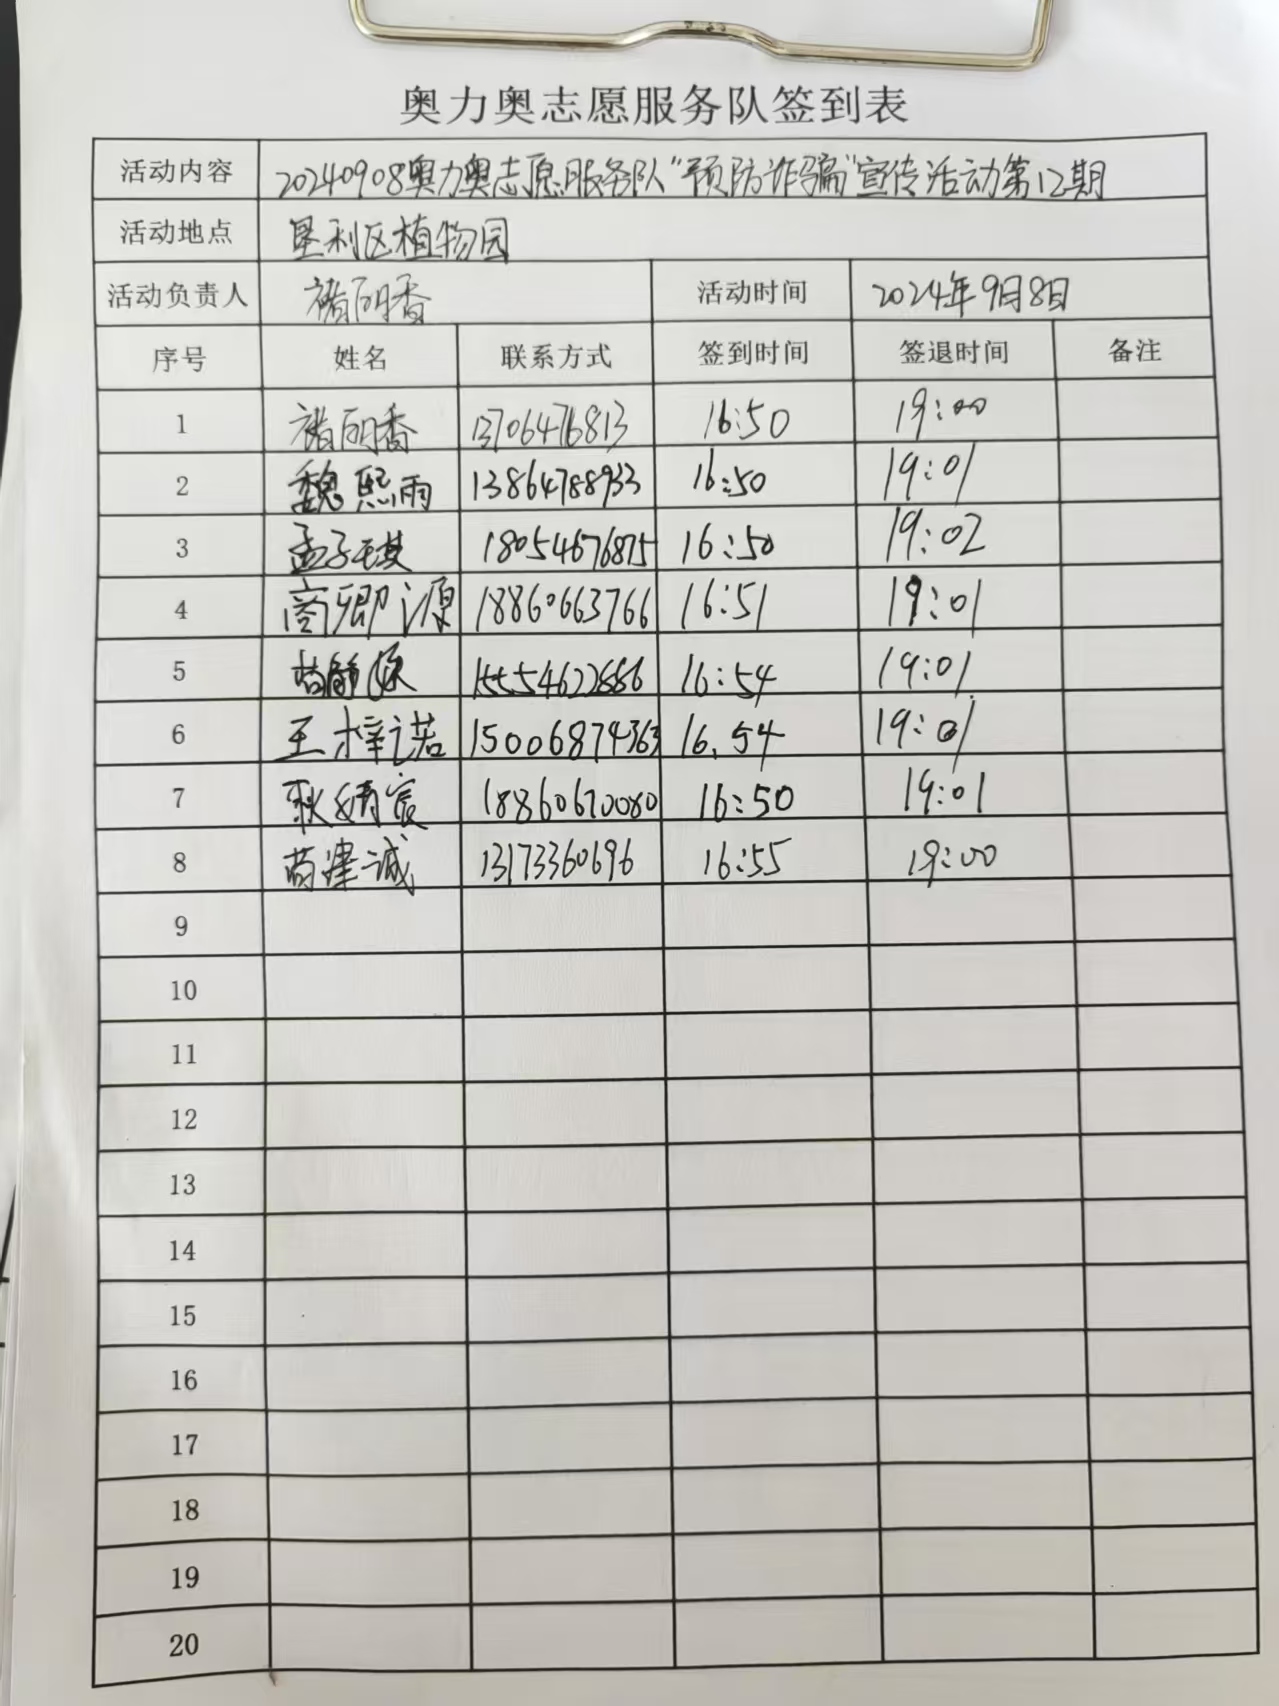 奥力奥志愿服务队签到表
活动内容 20240908奥力奥志愿服务队“预防诈骗”宣传活动第12期
活动地点 垦利区植物园
活动负责人 褚丽香 活动时间 2024年9月8日
序号 姓名 联系方式 签到时间 签退时间 备注
1 褚丽香 13706476813 16:50 19:00
2 魏熙雨 13864788933 16:50 19:01
3 孟子琪 18054676875 16:50 19:02
4 商卿源 18860663766 16:51 19:01
5 16:54 19:01
6 王梓诺 15006874363 16.54 19:01
7 耿婧宸 18860670080 16:50 19:01
8 苟建诚 13173360696 16:55 19:00
9
10
11
12
13
14
15
16
17
18
19
20